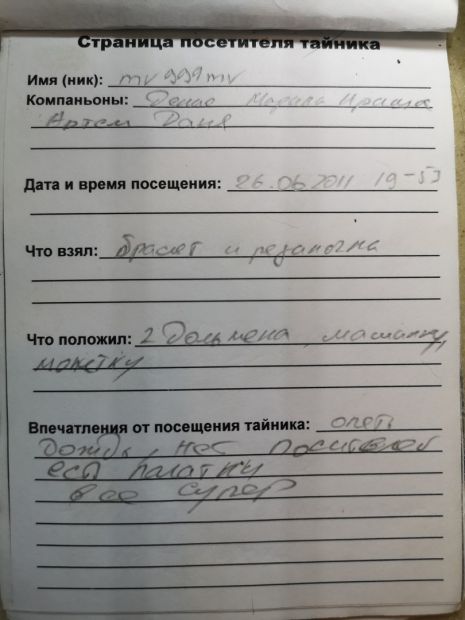 Страница посетителя тайника
Имя (ник): mv999mv
Компаньоны: Денис Марина Ириша
Артем Даня
Дата и время посещения: 26.06 2011 19-53
Что взял: браслет и резиночка
Что положил: 2 Дольмена, машинку,
монетку
Впечатления от посещения тайника: опять
Дождь, нас
есь палатку
все супер